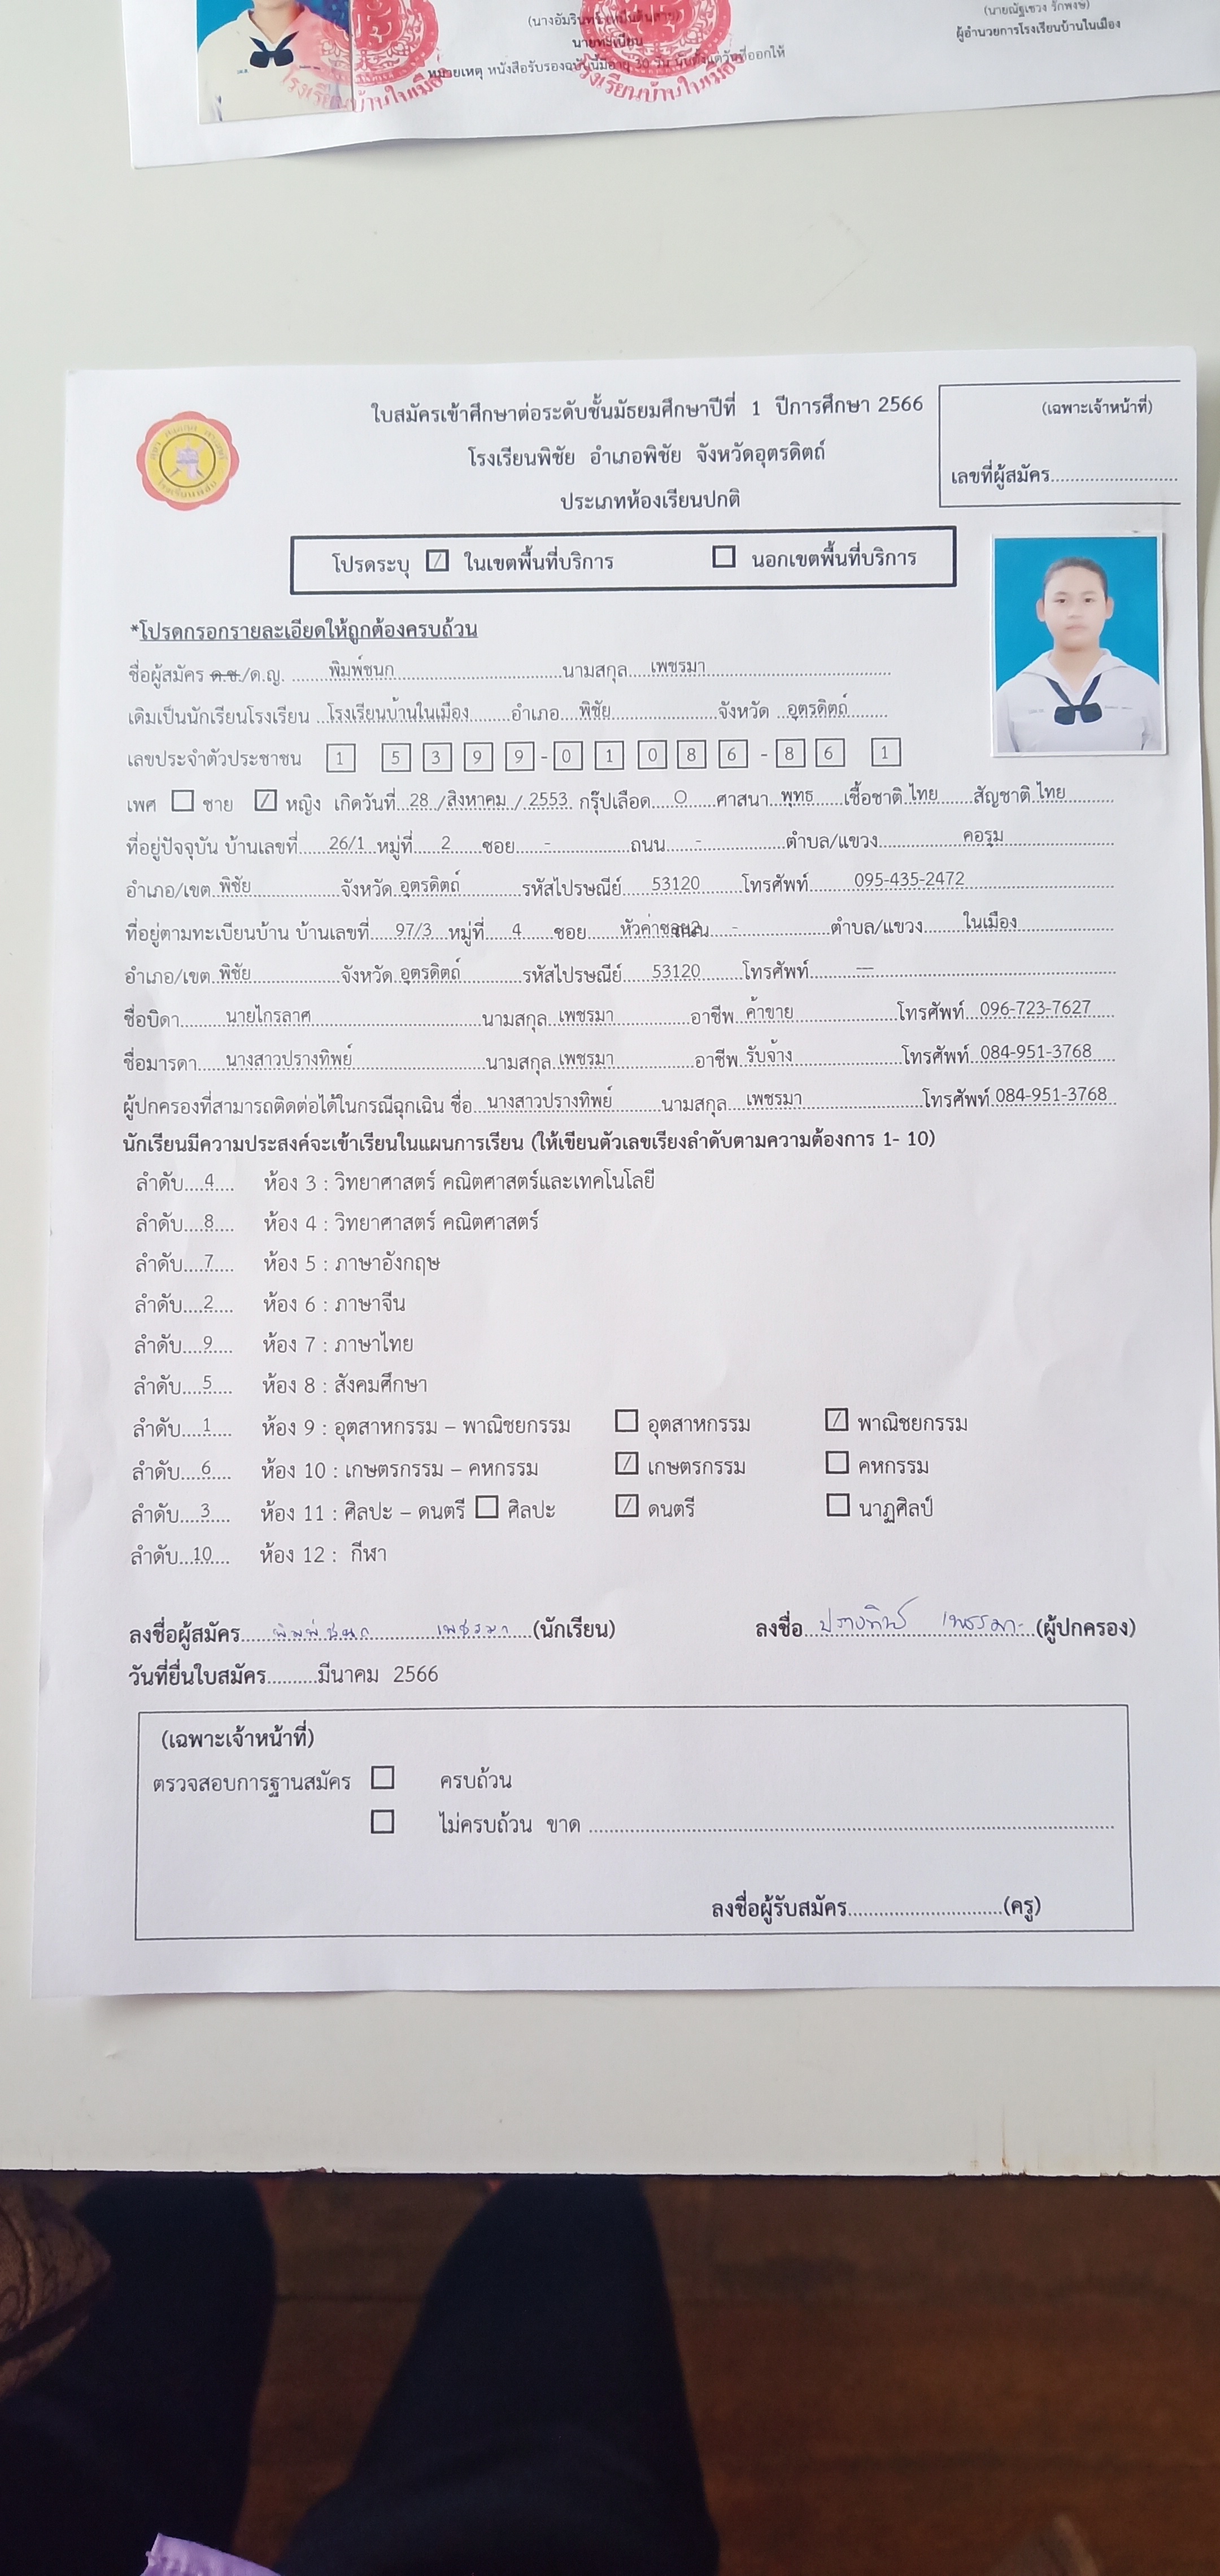 (นางอัมรินทร์
นายทะเบียน
หมายเหตุ หนังสือรับรองฉบับนี้มีอายุ 30 วัน นับตั้งแต่วันที่ออกให้
(นายณัฐเชวง รักพงษ์)
ผู้อำนวยการโรงเรียนบ้านในเมือง
โรงเรียนบ้านในเมือง
โรงเรียนบ้านในเมือง
ใบสมัครเข้าศึกษาต่อระดับชั้นมัธยมศึกษาปีที่ 1 ปีการศึกษา 2566
(เฉพาะเจ้าหน้าที่)
โรงเรียนพิชัย อำเภอพิชัย จังหวัดอุตรดิตถ์
เลขที่ผู้สมัคร..........................
ประเภทห้องเรียนปกติ
โรงเรียนพิชัย
โปรดระบุ ☑ ในเขตพื้นที่บริการ ☐ นอกเขตพื้นที่บริการ
*โปรดกรอกรายละเอียดให้ถูกต้องครบถ้วน
ชื่อผู้สมัคร ด.ช./ด.ญ. ......พิมพ์ชนก......นามสกุล....เพชรมา......
เดิมเป็นนักเรียนโรงเรียน ..โรงเรียนบ้านในเมือง......อำเภอ...พิชัย......จังหวัด ..อุตรดิตถ์......
เลขประจำตัวประชาชน 1 5 3 9 9 - 0 1 0 8 6 - 8 6 1
เพศ ☐ ชาย ☑ หญิง เกิดวันที่..28../สิงหาคม./.2553. กรุ๊ปเลือด....O....ศาสนา..พุทธ....เชื้อชาติ.ไทย......สัญชาติ.ไทย......
ที่อยู่ปัจจุบัน บ้านเลขที่......26/1..หมู่ที่.....2.....ซอย.....-......ถนน......-......ตำบล/แขวง......คอรุม......
อำเภอ/เขต.พิชัย......จังหวัด.อุตรดิตถ์......รหัสไปรษณีย์.....53120......โทรศัพท์......095-435-2472......
ที่อยู่ตามทะเบียนบ้าน บ้านเลขที่....97/3..หมู่ที่....4....ซอย.....หัวค่าซอย2 ถนน....-......ตำบล/แขวง......ในเมือง......
อำเภอ/เขต.พิชัย......จังหวัด.อุตรดิตถ์......รหัสไปรษณีย์.....53120......โทรศัพท์......---......
ชื่อบิดา......นายไกรลาศ......นามสกุล..เพชรมา......อาชีพ..ค้าขาย......โทรศัพท์..096-723-7627....
ชื่อมารดา.....นางสาวปรางทิพย์......นามสกุล.เพชรมา......อาชีพ.รับจ้าง......โทรศัพท์.084-951-3768....
ผู้ปกครองที่สามารถติดต่อได้ในกรณีฉุกเฉิน ชื่อ..นางสาวปรางทิพย์......นามสกุล...เพชรมา......โทรศัพท์.084-951-3768..
นักเรียนมีความประสงค์จะเข้าเรียนในแผนการเรียน (ให้เขียนตัวเลขเรียงลำดับตามความต้องการ 1- 10)
ลำดับ....4.... ห้อง 3 : วิทยาศาสตร์ คณิตศาสตร์และเทคโนโลยี
ลำดับ....8.... ห้อง 4 : วิทยาศาสตร์ คณิตศาสตร์
ลำดับ....7.... ห้อง 5 : ภาษาอังกฤษ
ลำดับ....2.... ห้อง 6 : ภาษาจีน
ลำดับ....9.... ห้อง 7 : ภาษาไทย
ลำดับ....5.... ห้อง 8 : สังคมศึกษา
ลำดับ....1.... ห้อง 9 : อุตสาหกรรม – พาณิชยกรรม ☐ อุตสาหกรรม ☑ พาณิชยกรรม
ลำดับ....6.... ห้อง 10 : เกษตรกรรม – คหกรรม ☑ เกษตรกรรม ☐ คหกรรม
ลำดับ....3.... ห้อง 11 : ศิลปะ – ดนตรี ☐ ศิลปะ ☑ ดนตรี ☐ นาฏศิลป์
ลำดับ...10.... ห้อง 12 : กีฬา
ลงชื่อผู้สมัคร......พิมพ์ชนก เพชรมา....(นักเรียน) ลงชื่อ..ปรางทิพย์ เพชรมา..(ผู้ปกครอง)
วันที่ยื่นใบสมัคร..........มีนาคม 2566
(เฉพาะเจ้าหน้าที่)
ตรวจสอบการฐานสมัคร ☐ ครบถ้วน
☐ ไม่ครบถ้วน ขาด ..........................................................
ลงชื่อผู้รับสมัคร..............................(ครู)